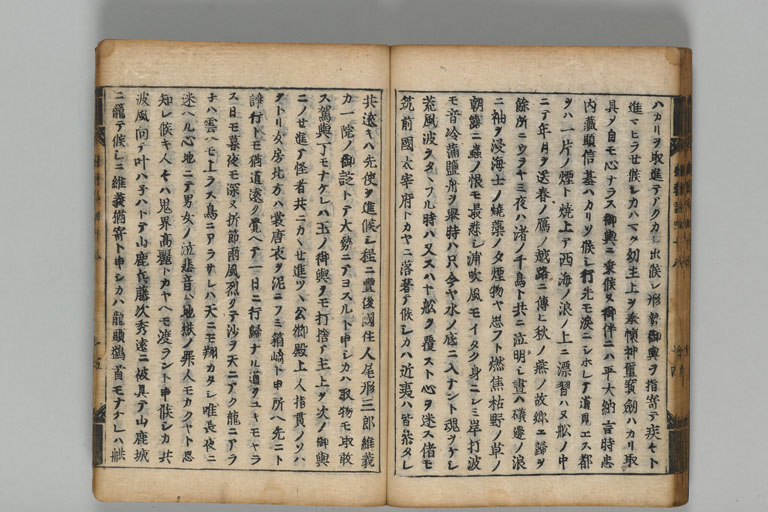 ハカリヲ取進テアクカレ出候レ形勢御輿ヲ指寄テ疾々ト
進マヒラセ候シカハマタ幼主上ヲ奉懐神璽寳劔ハカリ取
具メ自モ心ナラス御輿ニ乗候ヌ御伴ニハ平大納言時忠
内蔵頭信基ハカリソ候レ行先モ涙ニシホレテ道見エス都
ヲハ一片ノ煙ト焼上テ西海ノ浪ノ上ニ漂習ハヌ舩ノ中
ニテ年月ヲ送春ノ鴈ノ越路ニ傳ヒ秋ノ燕ノ故郷エ歸ヲ
餘所ニウラヤミ夜ハ渚ノ千鳥ト共ニ泣明シ晝ハ磯邊ノ浪
ニ袖ヲ浸海士ノ焼藻ノ夕ノ煙物ヤ思フト燃焦枯野ノ草ノ
朝露ニ蟲ノ恨モ最悲シ浦吹風モイタク身ニレミ岸打波
モ音冷蒲鹽舟ヲ乗時ハ只今ヤ水ノ底ニ入ナント魂ヲケレ
荒風波ヲタヽフル時ハ又スハヤ舩ヲ覆スト心ヲ迷ス偖モ
筑前國太宰府トカヤニ落着テ候シカハ近夷ハ皆参タレ
共遠キハ先使ヲ進候シ程ニ豊後國住人尾形三郎維義
カ一院ノ御諚トテ大勢ニテヨスルト申シカハ取物モ取敢
ス駕輿丁モナケレハ玉ノ御輿ヲモ打捨テ主上ヲ次ノ御輿
ニノせ進テ怪者共ニカヽせ進ツヽ公卿殿上人指貫ノソハ
ヲトリ女房北方ハ裳唐衣ヲ泥ニフミ箱崎ト申所ヘ先ニト
諍行トモ猶道遠ク覺ヘテ一日ニ行歸ナル道ヲユキモヤラ
ス日モ暮夜モ深ヌ折節雨風烈ク テ沙ヲ天ニアク龍ニアラ
子ハ雲ヘモ上ラス鳥ニアラサレハ天ニモ翔カタシ唯長夜ニ
迷ヘル心地ニテ男女ノ泣悲音ハ地獄ノ罪人モカクヤト思
知レ候キ人々ハ鬼界高麗トカヤヘモ渡ラント申候シカ共
波風向テ叶ハ子ハトテ山鹿兵藤次秀遠ニ被具テ山鹿城
ニ籠テ候シニ維義猶寄ト申シカハ龍頭鷁首モナケレハ舩